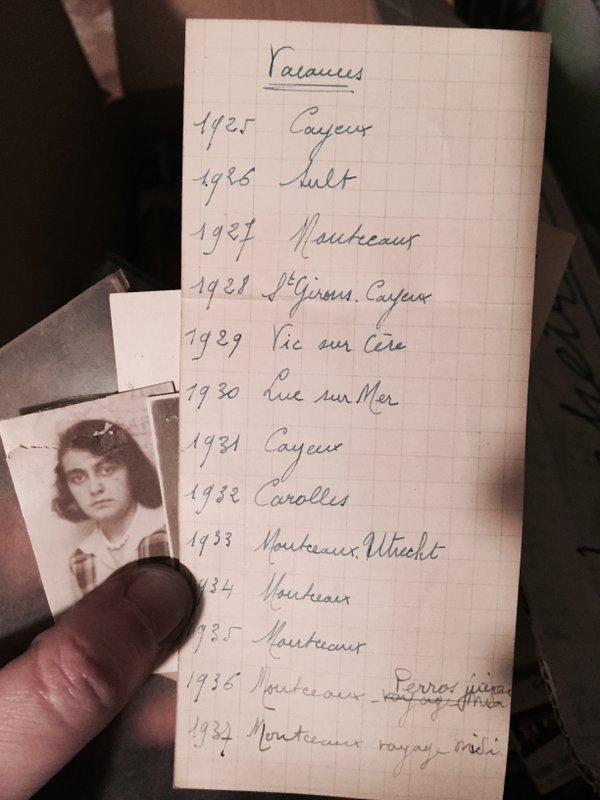 Vacances
1925 Cayeux
1926 Sult
1927 Montceaux
1928 St Girons. Cayeux
1929 Vic sur Cère
1930 Luc sur Mer
1931 Cayeux
1932 Carolles
1933 Montceaux. Utrecht
1934 Montceaux
1935 Montceaux
Perros guirec
1936 Montceaux - voyage midi
1937 Montceaux voyage midi